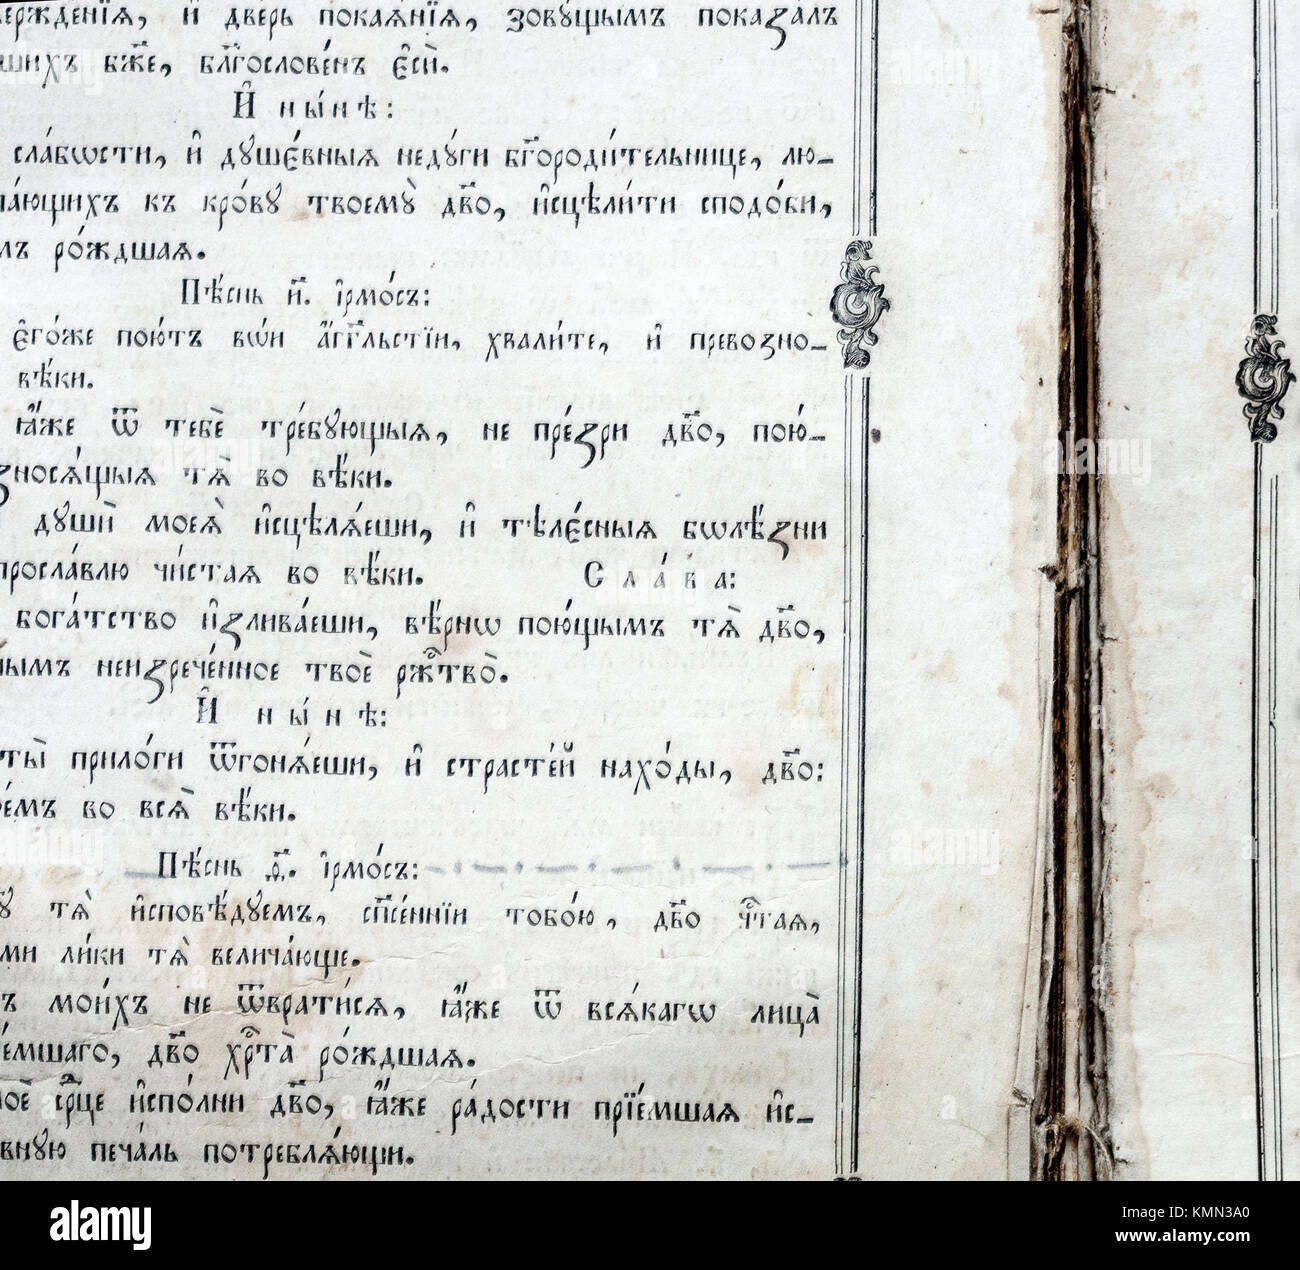 и҆ две́рь покаѧ́нїѧ, зовꙋ́щымъ показа́лъ
бж҃е, бл҃гослове́нъ є҆сѝ.
И҆ ны́нѣ:
сла́бѡсти, и҆ дꙋшє́вныѧ недꙋ́ги бг҃ороди́тельнице, лю-
къ кро́вꙋ твоемꙋ̀ дв҃о, и҆сцѣли́ти сподо́би,
ро́ждшаѧ.
Пѣ́снь и҃. і҆рмо́съ:
є҆го́же пою́тъ во́и а҆́гг҃льстїи, хвали́те, и҆ превозно-
вѣ́ки.
ꙗ҆̀же ѿ тебѐ тре́бꙋющыѧ, не пре́зри дв҃о, пою́-
зносѧ́щыѧ тѧ̀ во вѣ́ки.
дꙋшѝ моеѧ̀ и҆сцѣлѧ́еши, и҆ тѣлє́сныѧ бѡлѣ́зни
просла́влю чи́стаѧ во вѣ́ки. Сла́ва:
бога́тство и҆злива́еши, вѣ́рнѡ пою́щымъ тѧ̀ дв҃о,
неизрече́нное твоѐ ржⷭ҇тво̀.
И҆ ны́нѣ:
прило́ги ѿгонѧ́еши, и҆ страсте́й нахо́ды, дв҃о:
во всѧ̀ вѣ́ки.
Пѣ́снь ѳ҃. і҆рмо́съ:
тѧ̀ и҆сповѣ́дꙋемъ, сп҃се́ннїи тобо́ю, дв҃о чⷭ҇таѧ,
ли́ки тѧ̀ велича́юще.
мои́хъ не ѿврати́сѧ, ꙗ҆́же ѿ всѧ́кагѡ лица̀
е́мшаго, дв҃о хрⷭ҇та̀ ро́ждшаѧ.
срⷣце и҆спо́лни дв҃о, ꙗ҆́же ра́дости прїе́мшаѧ и҆с-
вную печа́ль потреблѧ́ющи.
alamy
Image ID: KMN3A0
www.alamy.com